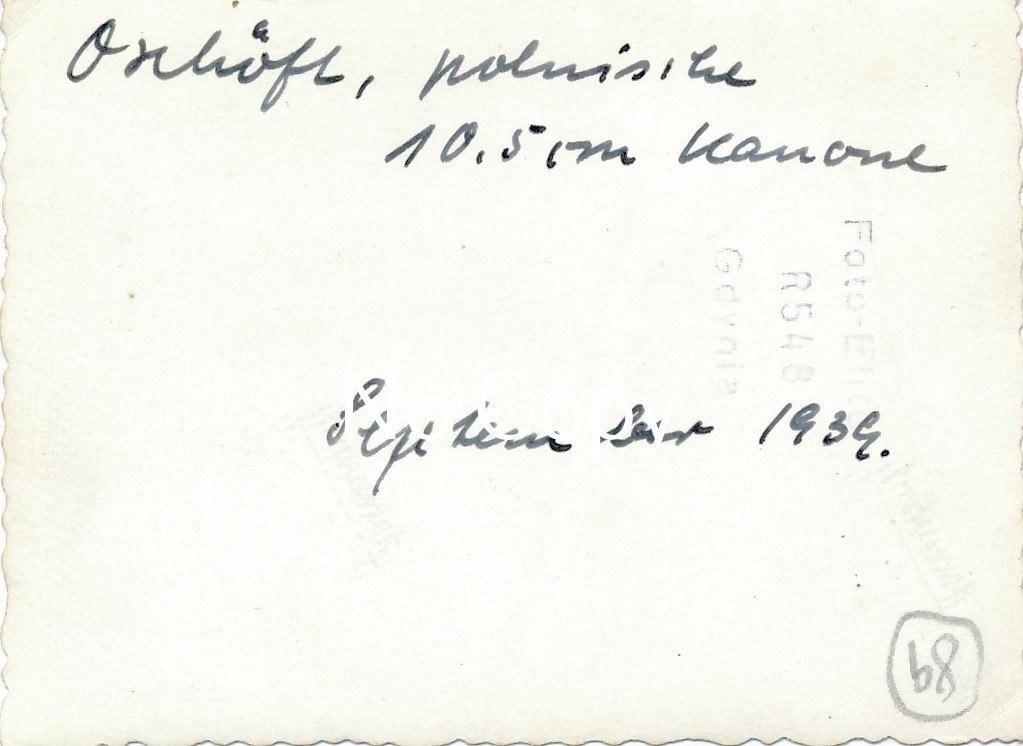 Oxhöft, polnische
10.5 cm Kanone
Foto-Elite
R548
Gdynia
September 1939.